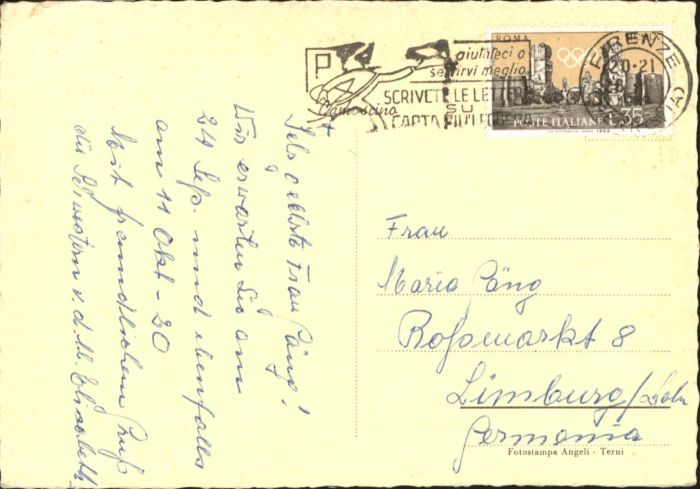 P
aiutateci a
servirvi meglio
SCRIVETE LE LETTERE
SU
CARTA PIÙ LEGGERA
Camoscina
ROMA
POSTE ITALIANE L.35
FIRENZE
20-21
Sehr geehrte Frau Päng!
Wir erwarten Sie am
24 Sep. und ebenfalls
am 11 Okt - 20
Mit freundlichem Gruß
die Schwestern v. d. hl. Elisabeth
Frau
Maria Päng
Roßmarkt 8
Limburg/Lahn
Germania
Fotostampa Angeli - Terni